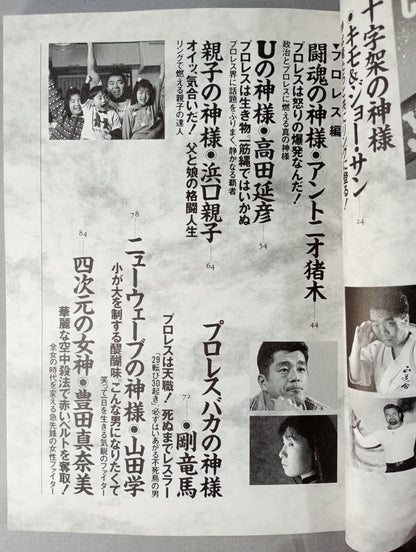 十字架の神様
・キモ&ジョー・サン
24
プロレス編
闘魂の神様●アントニオ猪木
プロレスは怒りの爆発なんだ!
政治とプロレスに燃える真の神様
44
Uの神様●高田延彦
プロレスは生き物。一筋縄ではいかぬ
プロレス界に話題をふりまく、静かなる覇者
54
親子の神様●浜口親子
オイッ、気合いだ! 父と娘の格闘人生
リングで燃える親子の達人
64
プロレスバカの神様
●剛竜馬
プロレスは天職! 死ぬまでレスラー
「29転び30起き」必ずはいあがる不死鳥の男
72
ニューウェーブの神様●山田学
小が大を制する醍醐味。こんな男になりたくて
笑って一日を生きる気鋭のファイター
78
四次元の女神●豊田真奈美
華麗な空中殺法で赤いベルトを奪取!
全女の時代を変える急先鋒の女性ファイター
84